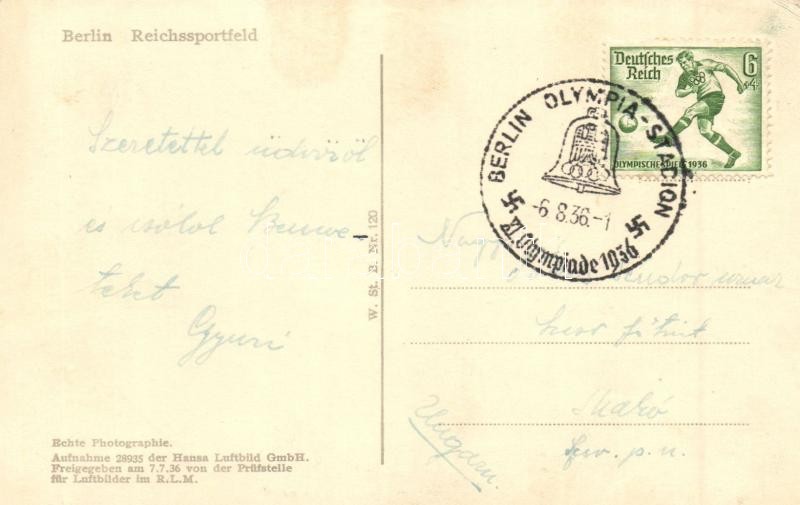 Berlin Reichssportfeld
Deutsches 6
Reich +4
OLYMPISCHE SPIELE 1936
BERLIN OLYMPIA-STADION
-6.8.36.-1
XI. Olympiade 1936
Szeretettel üdvözöl
és csókol
teket
Gyuri
W. St. B. Nr. 120
Nagys
Makó
Ungarn.
Echte Photographie.
Aufnahme 28935 der Hansa Luftbild GmbH.
Freigegeben am 7.7.36 von der Prüfstelle
für Luftbilder im R.L.M.